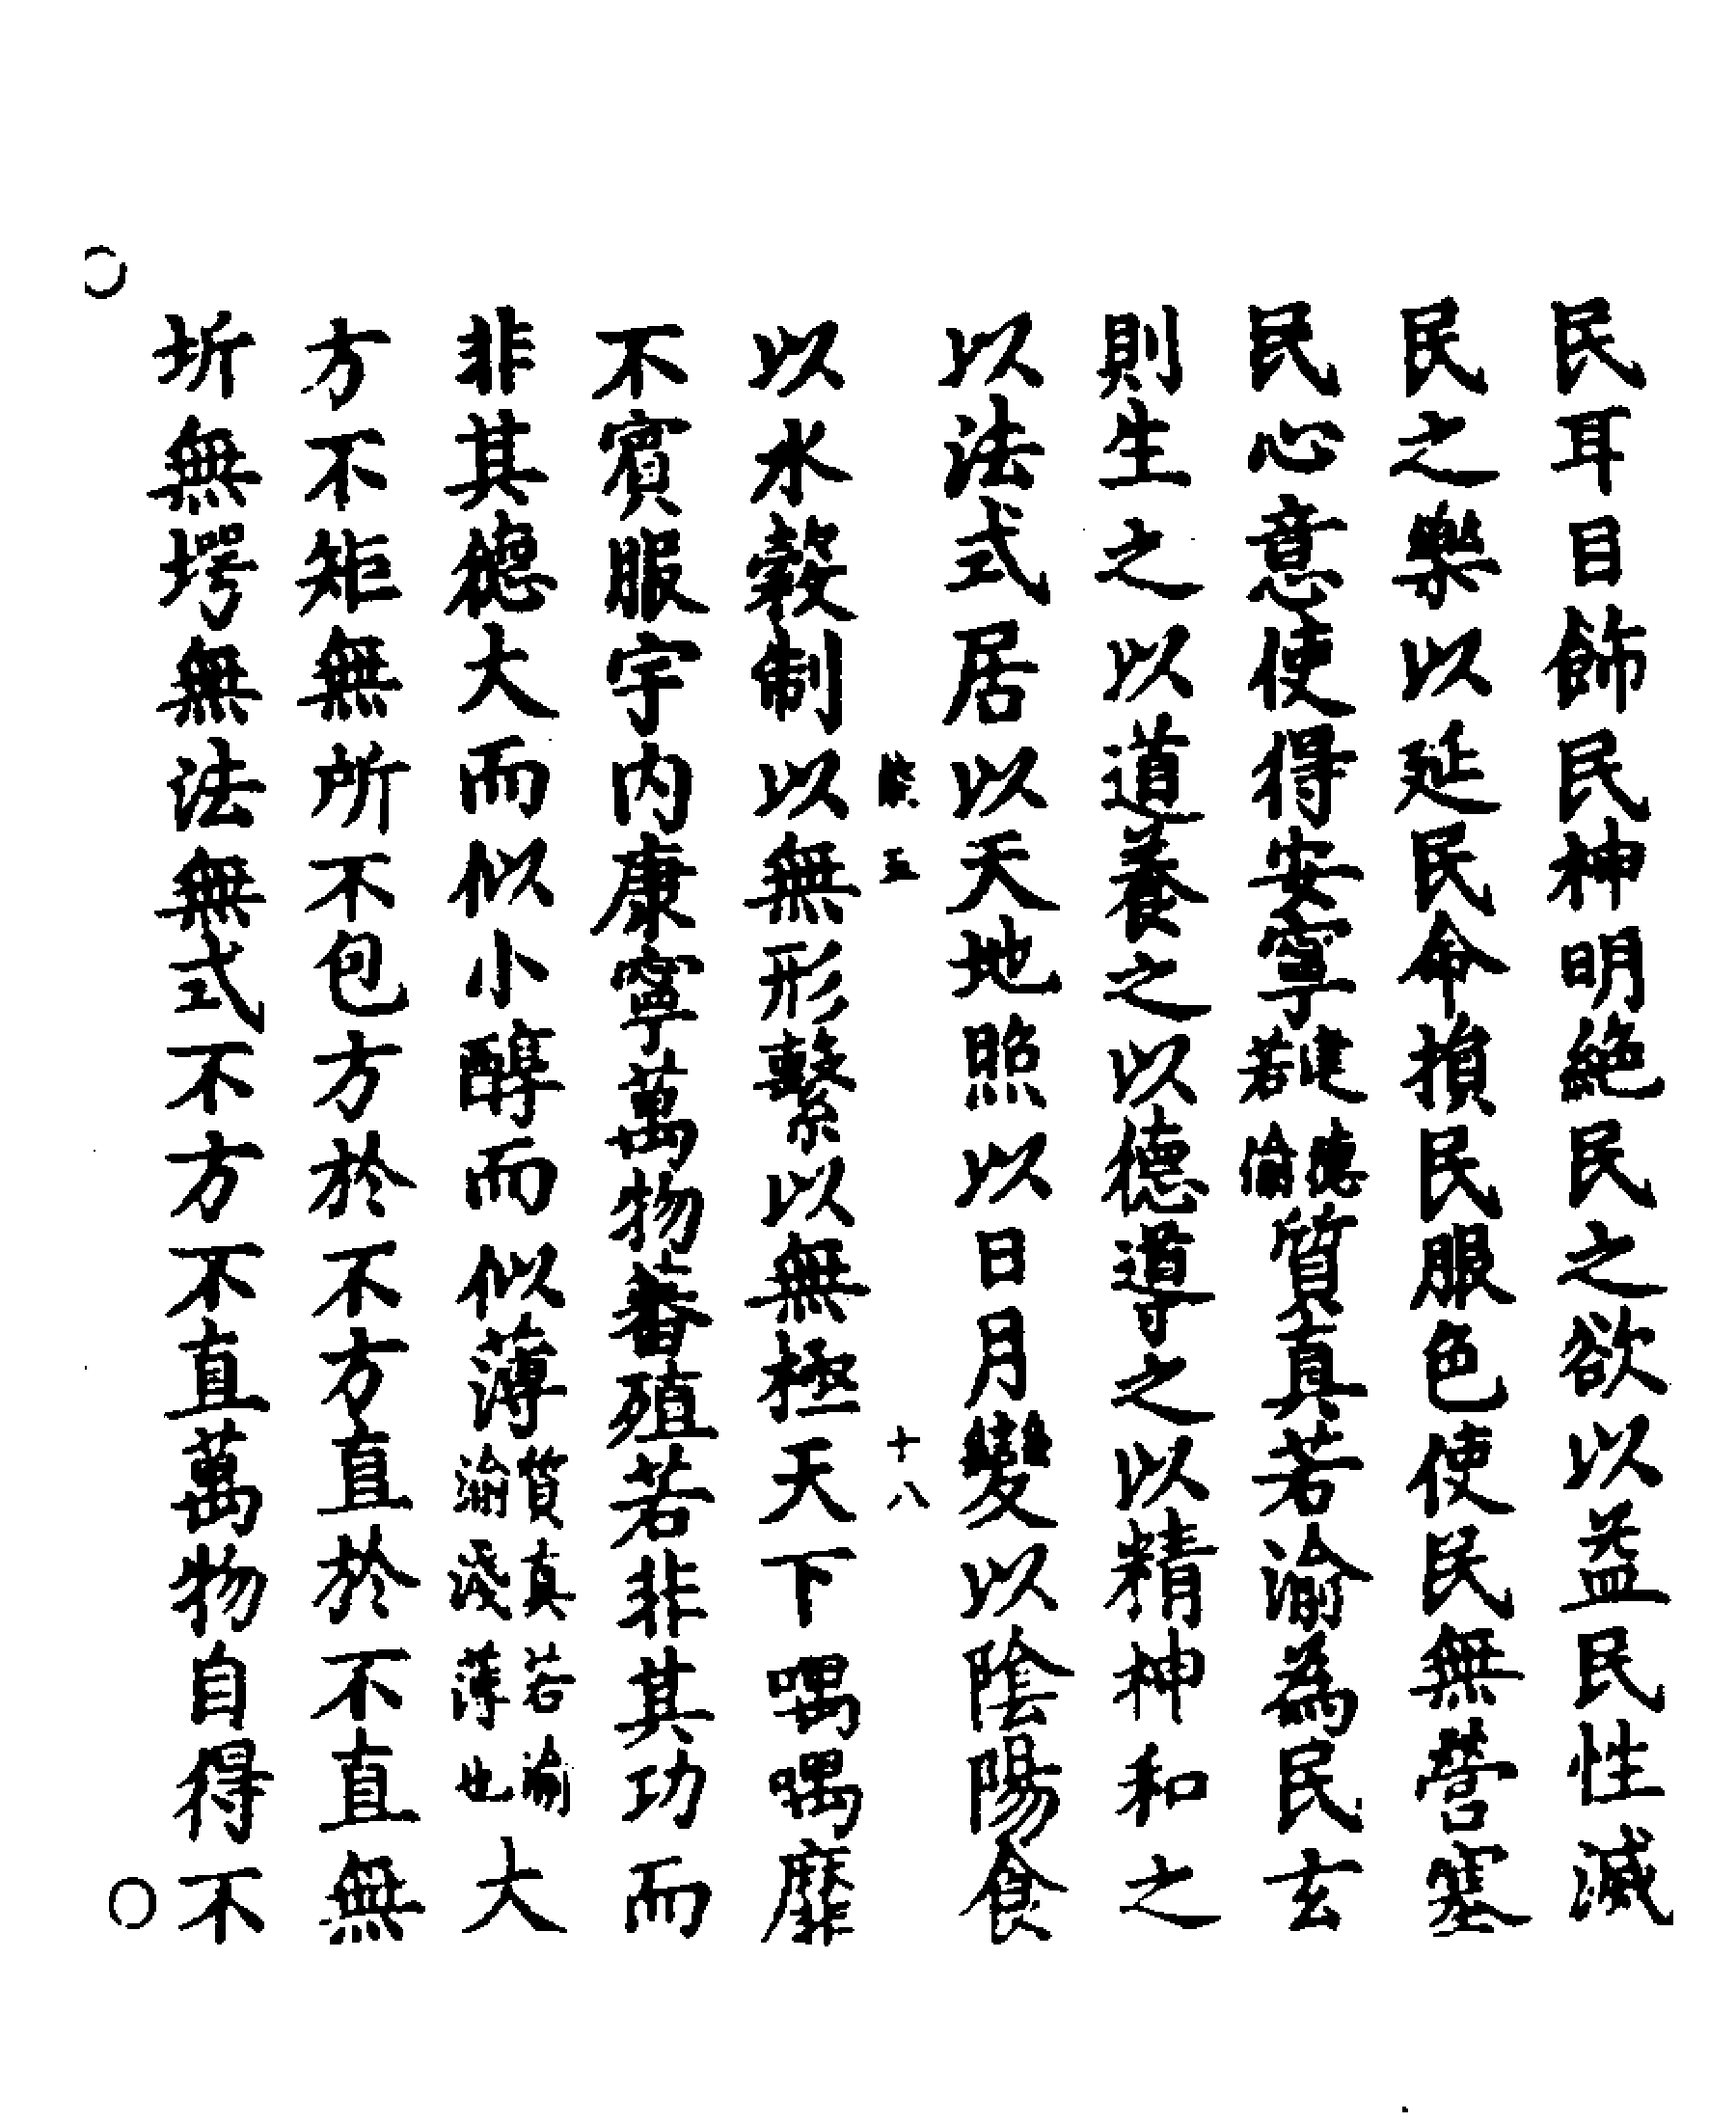 民耳目飾民神明絶民之欲以益民性滅
民之樂以延民命損民服色使民無營塞
民心意使得安寧建德若偷質真若渝為民玄
則生之以道養之以德導之以精神和之
以法式居以天地照以日月變以陰陽食
五
十八
以水糓制以無形繫以無極天下喁喁靡
不賓服宇内康寧萬物蕃殖若非其功而
非其德大而似小醇而似薄質真若渝渝淺薄也大
方不矩無所不包方於不方直於不直無
圻無堮無法無式不方不直萬物自得不